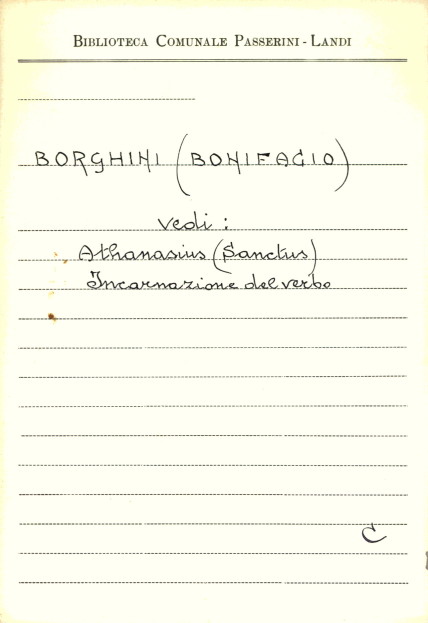 BIBLIOTECA COMUNALE PASSERINI - LANDI
BORGHINI (BONIFACIO)
vedi :
Athanasius (Sanctus)
Incarnazione del verbo
C